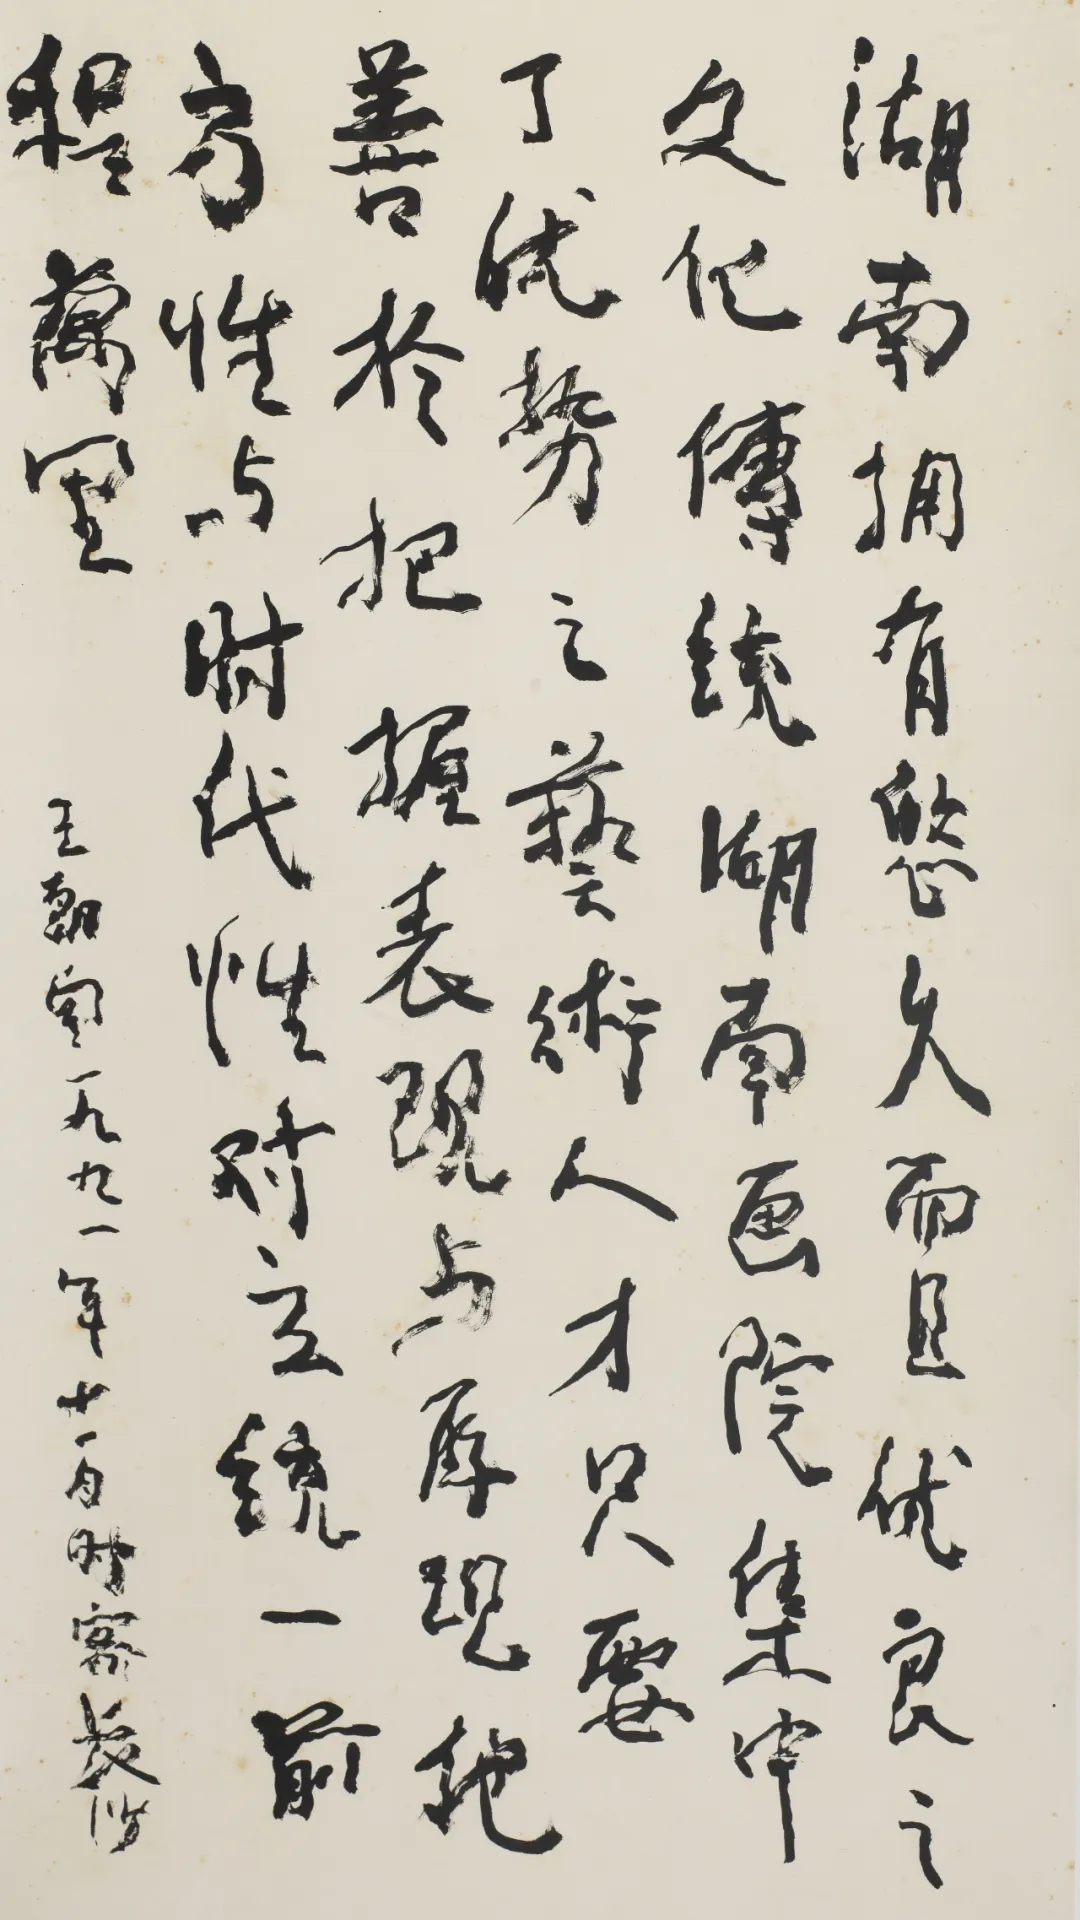 湖南拥有悠久而且优良之
文化傳統湖南画院集中
了优势之藝術人才只要
善於把握表现与再现地
方性与时代性对立統一前
程萬里
王朝闻一九九一年十一月时客長沙